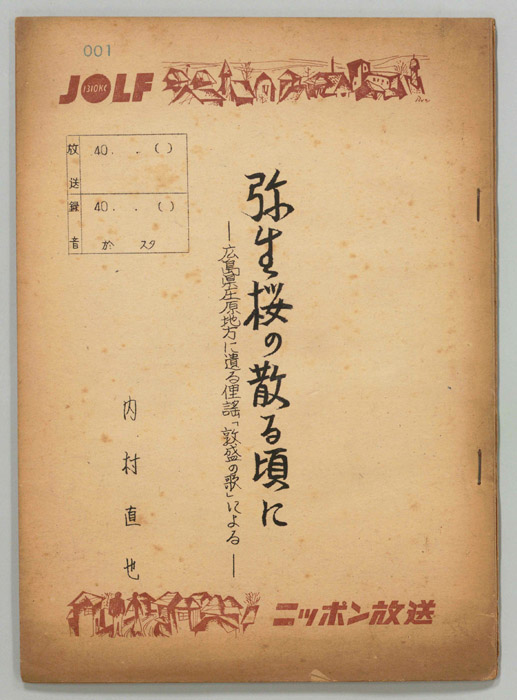 001
JOLF
1310KC
放送 40. . ( )
録音 40. . ( )
於 スタ
弥生桜の散る頃に
―広島県庄原地方に遺る俚謡「敦盛の歌」による―
内村直也
ニッポン放送